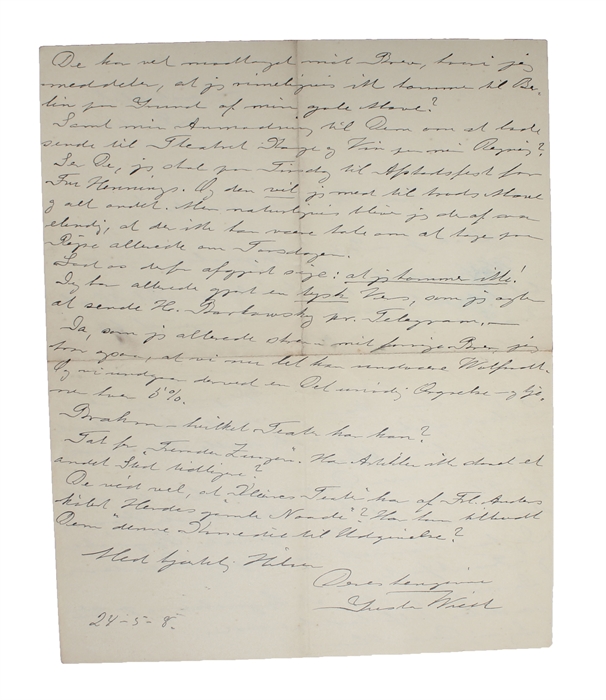 De har vel modtaget mit Brev, hvori jeg
meddeler, at jeg rimeligvis ikke kommer til Ber-
lin paa Grund af min gale Mave?
Samt min Anmodning til Dem om at lade
sende til Theatret Penge og Vin for min Regning?
Ser De, jeg skal paa Tirsdag til Afskedsfest for
Fru Hennings. Og den vil jeg med til trods Mave
og alt andet. Men naturligvis bliver jeg deraf saa
elendig, at der ikke kan være Tale om at tage paa
Rejse allerede om Torsdagen.
Lad os derfor afgjort sige: at jeg kommer ikke!
Jeg har allerede gjort en tysk Vers, som jeg agter
at sende H. pr. Telegram. —
Ja, som jeg allerede skrev i mit forrige Brev, jeg
tror ogsaa, at vi nu let kan undvære
Og vi undgaar derved en Del unødig Ærgrelse – og tje-
ner hver 5%.
Brahm – hvilket Teater har han?
Tak for "Fremden Zungen". Har Artiklen ikke staaet et
andet Sted tidligere?
De véd vel, at "Kleines Teater" har af Frl. Anders
købt "Hendes gamle Naade"? Har hun tilbudt
Dem denne Komedie til Udgivelse?
Med hjertelig Hilsen
Deres hengivne
Gustav Wied
24-5-8.